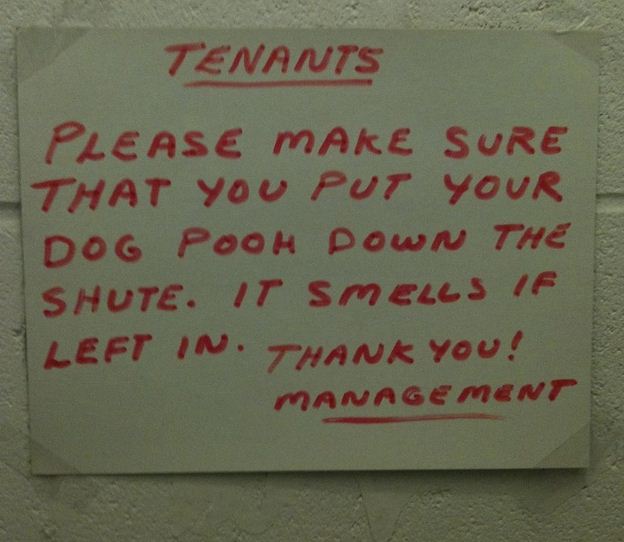 TENANTS
PLEASE MAKE SURE
THAT YOU PUT YOUR
DOG POOH DOWN THE
SHUTE. IT SMELLS IF
LEFT IN. THANK YOU!
MANAGEMENT